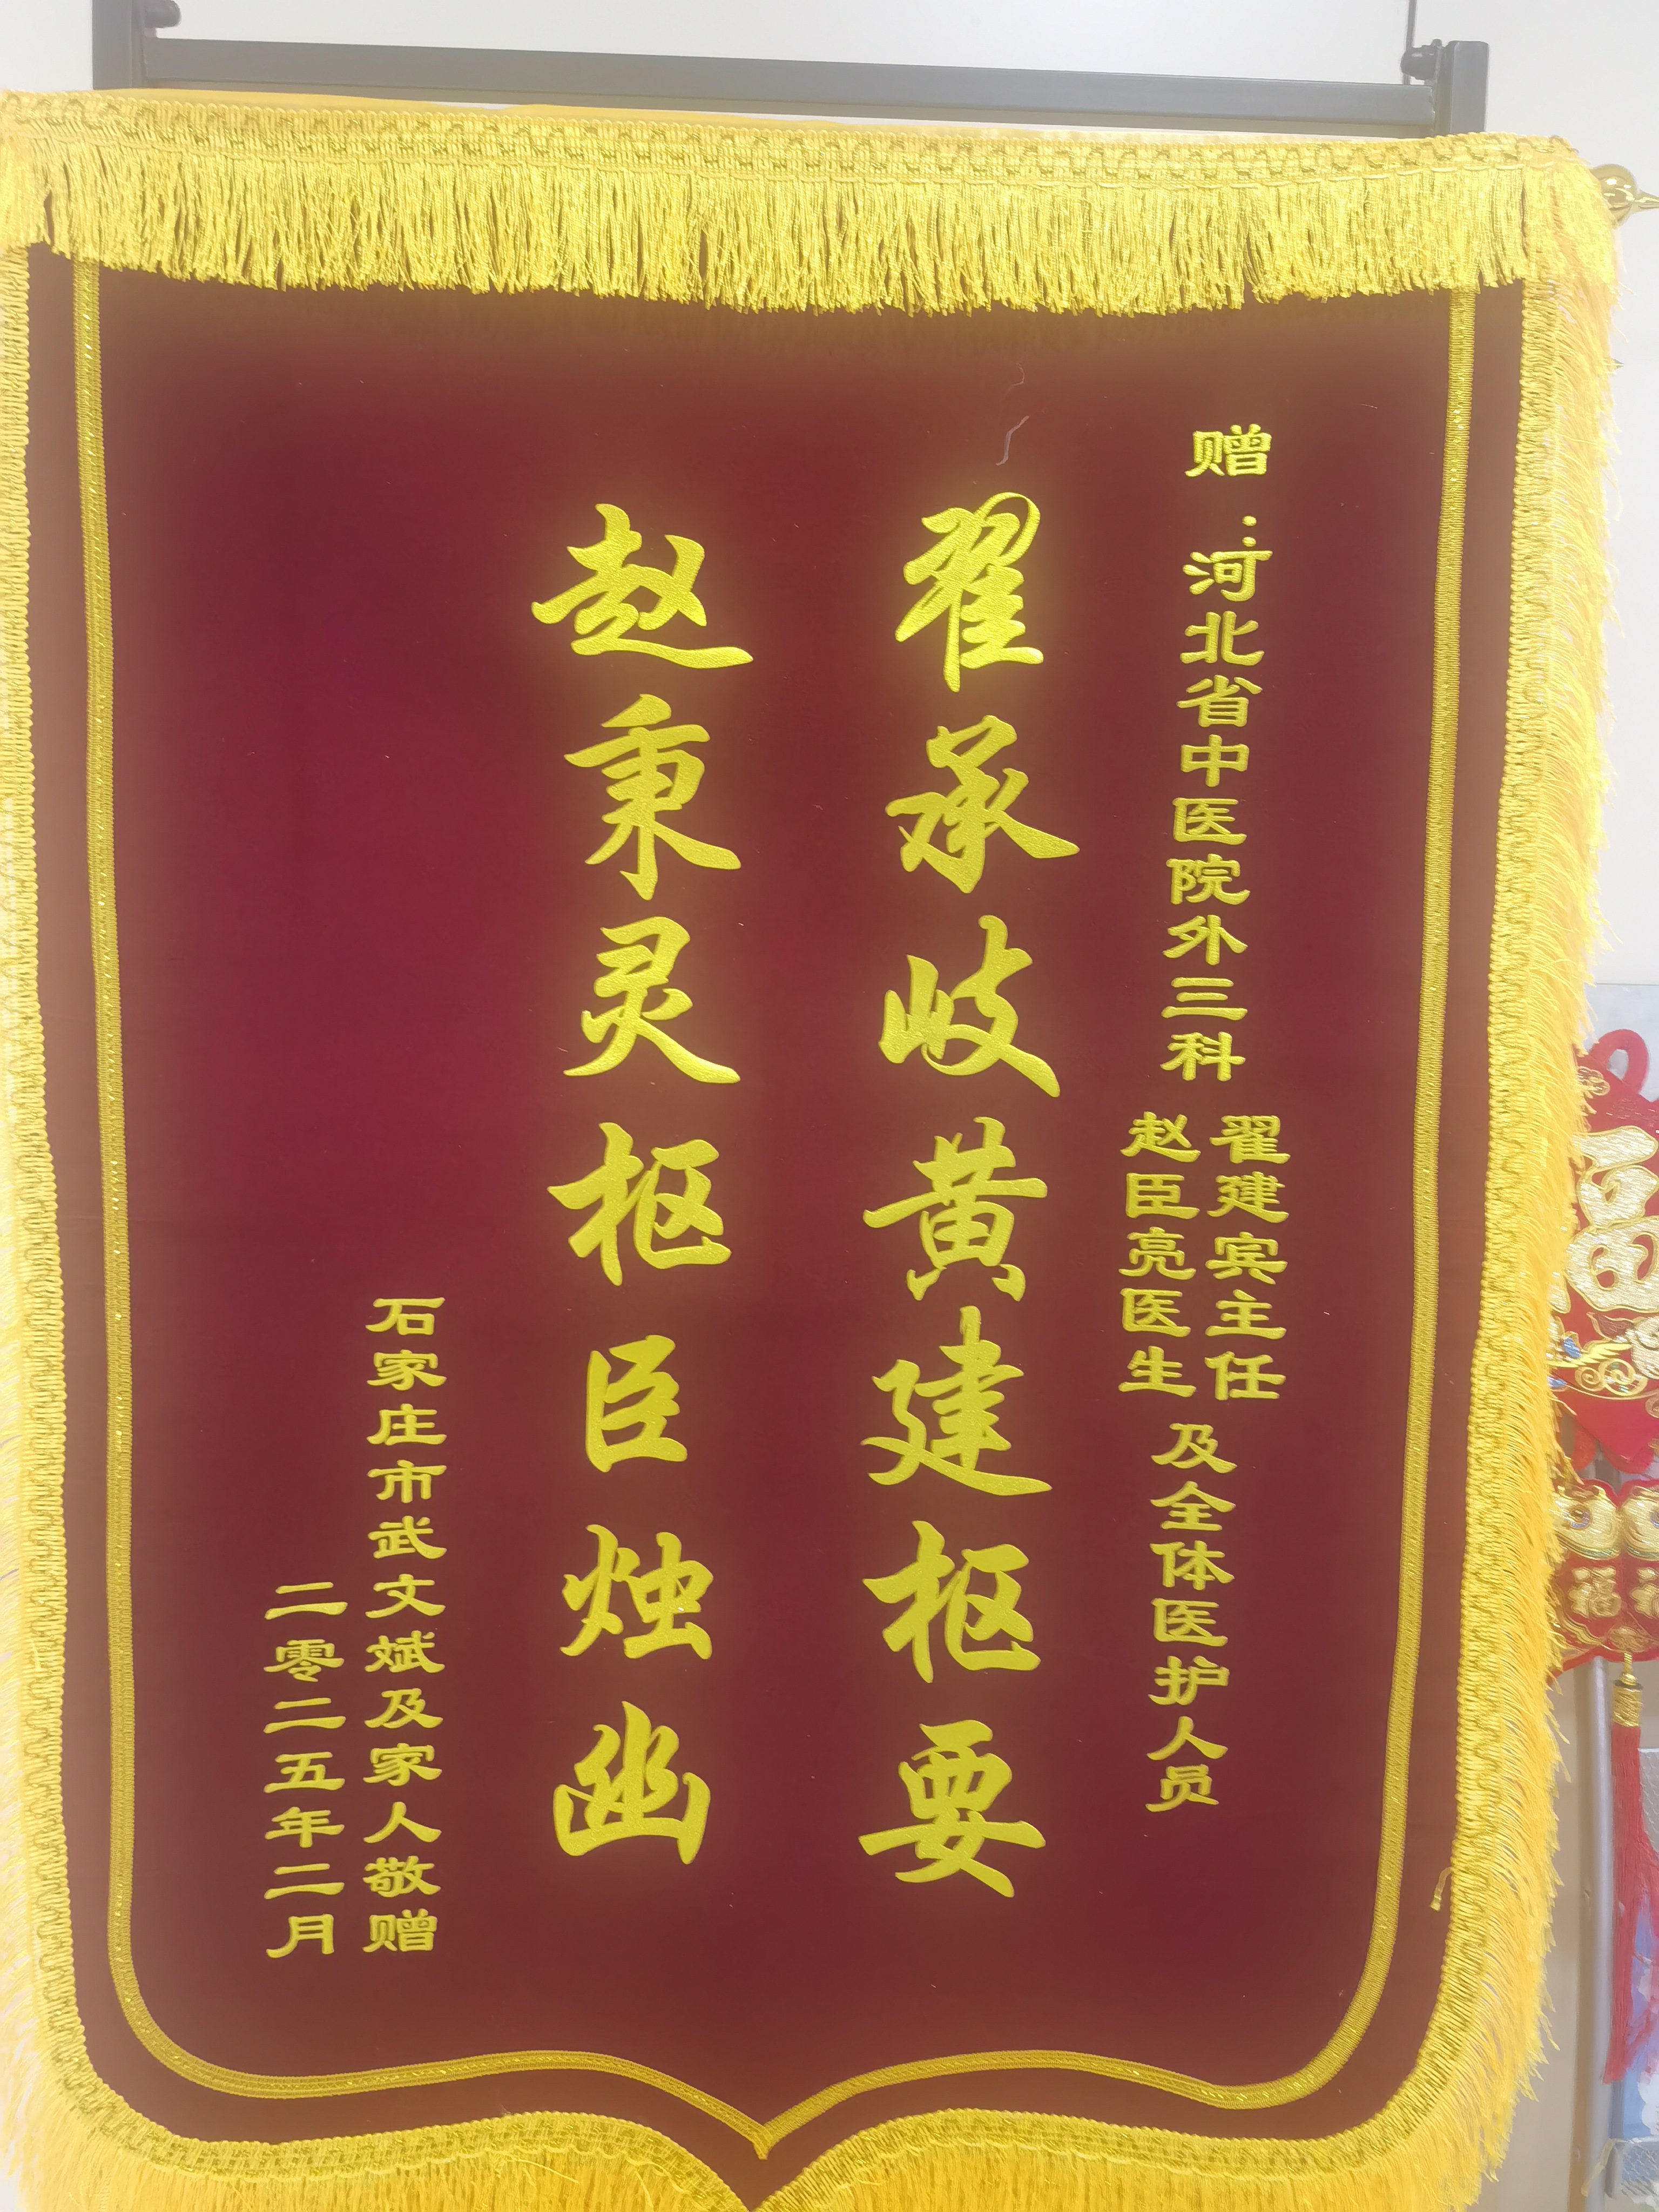 赠：河北省中医院外三科
翟建宾主任
赵臣亮医生
及全体医护人员
翟承岐黄建枢要
赵秉灵枢臣烛幽
石家庄市武文斌及家人敬赠
二零二五年二月
福